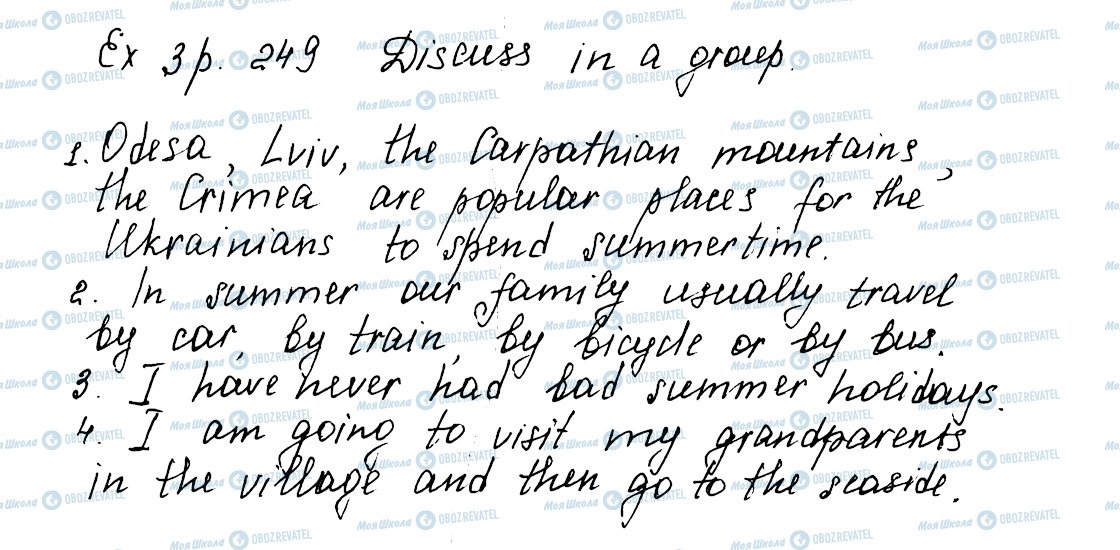 Ex 3 p. 249 Discuss in a group.
1. Odesa, Lviv, the Carpathian mountains,
the Crimea are popular places for the
Ukrainians to spend summertime.
2. In summer our family usually travel
by car, by train, by bicycle or by bus.
3. I have never had bad summer holidays.
4. I am going to visit my grandparents
in the village and then go to the seaside.